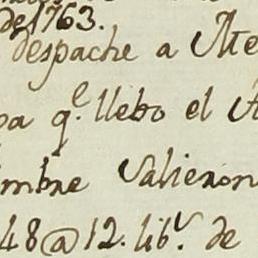 de 1763.
despache a Ate
pa q.e llebo el A
mbre Salieron
48 @ 12. lib.s de